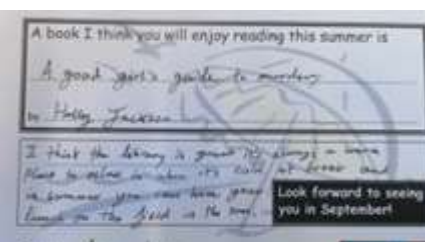 A book I think you will enjoy reading this summer is
A good girl's guide to murder
by Holly Jackson
I think the library is great it's always a warm
place to relax in when it's cold at break and
in summer you can have your
lunch on the field in the
Look forward to seeing
you in September!